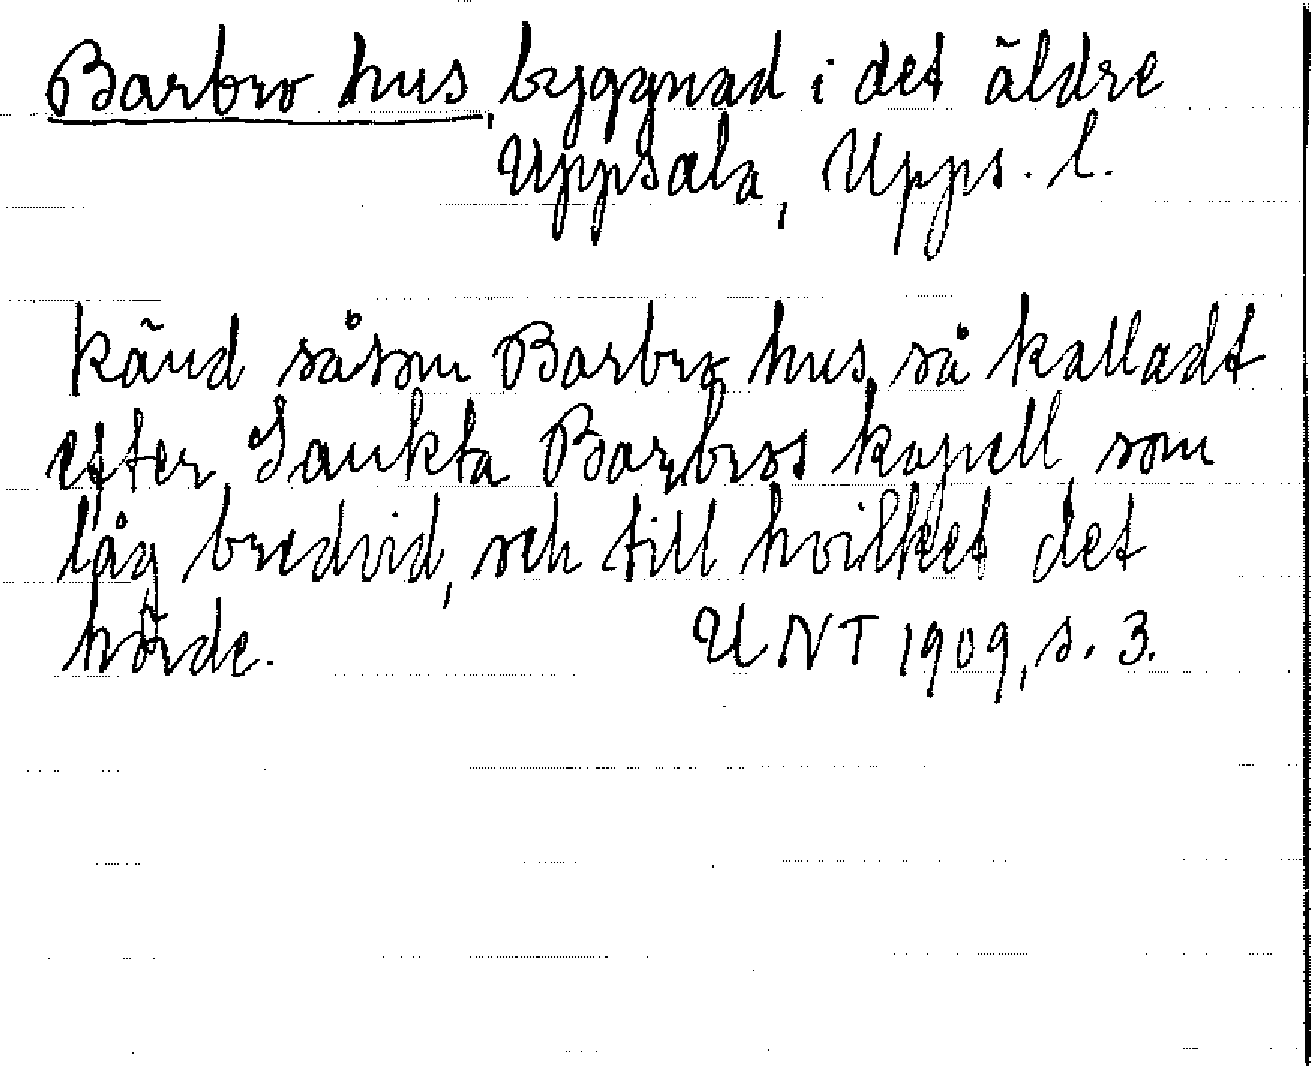 Barbro hus, byggnad i det äldre
Uppsala, Upps. l.
känd såsom Barbro hus, så kalladt
efter Sankta Barbros kapell som
låg bredvid, och till hvilket det
hörde. UNT 1909, s. 3.